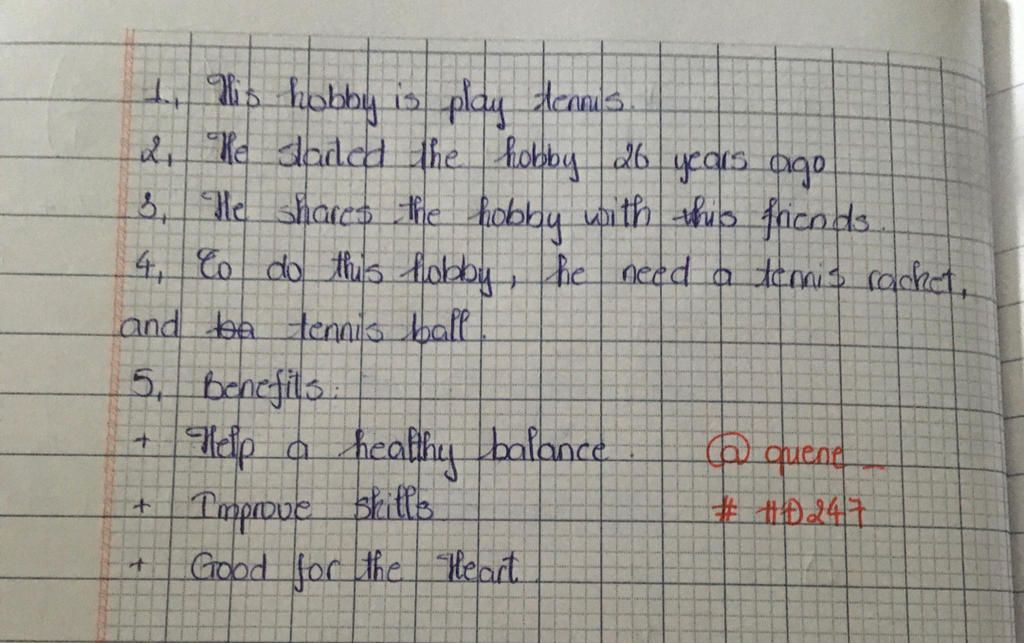 1, His hobby is play tennis.
2, He started the hobby 26 years ago
3, He shares the hobby with this friends.
4, To do this hobby, he need a tennis racket,
and tennis ball.
5, Benefits:
+ Help a healthy balance.
@ quene _
+ Improve skills
# HD247
+ Good for the Heart